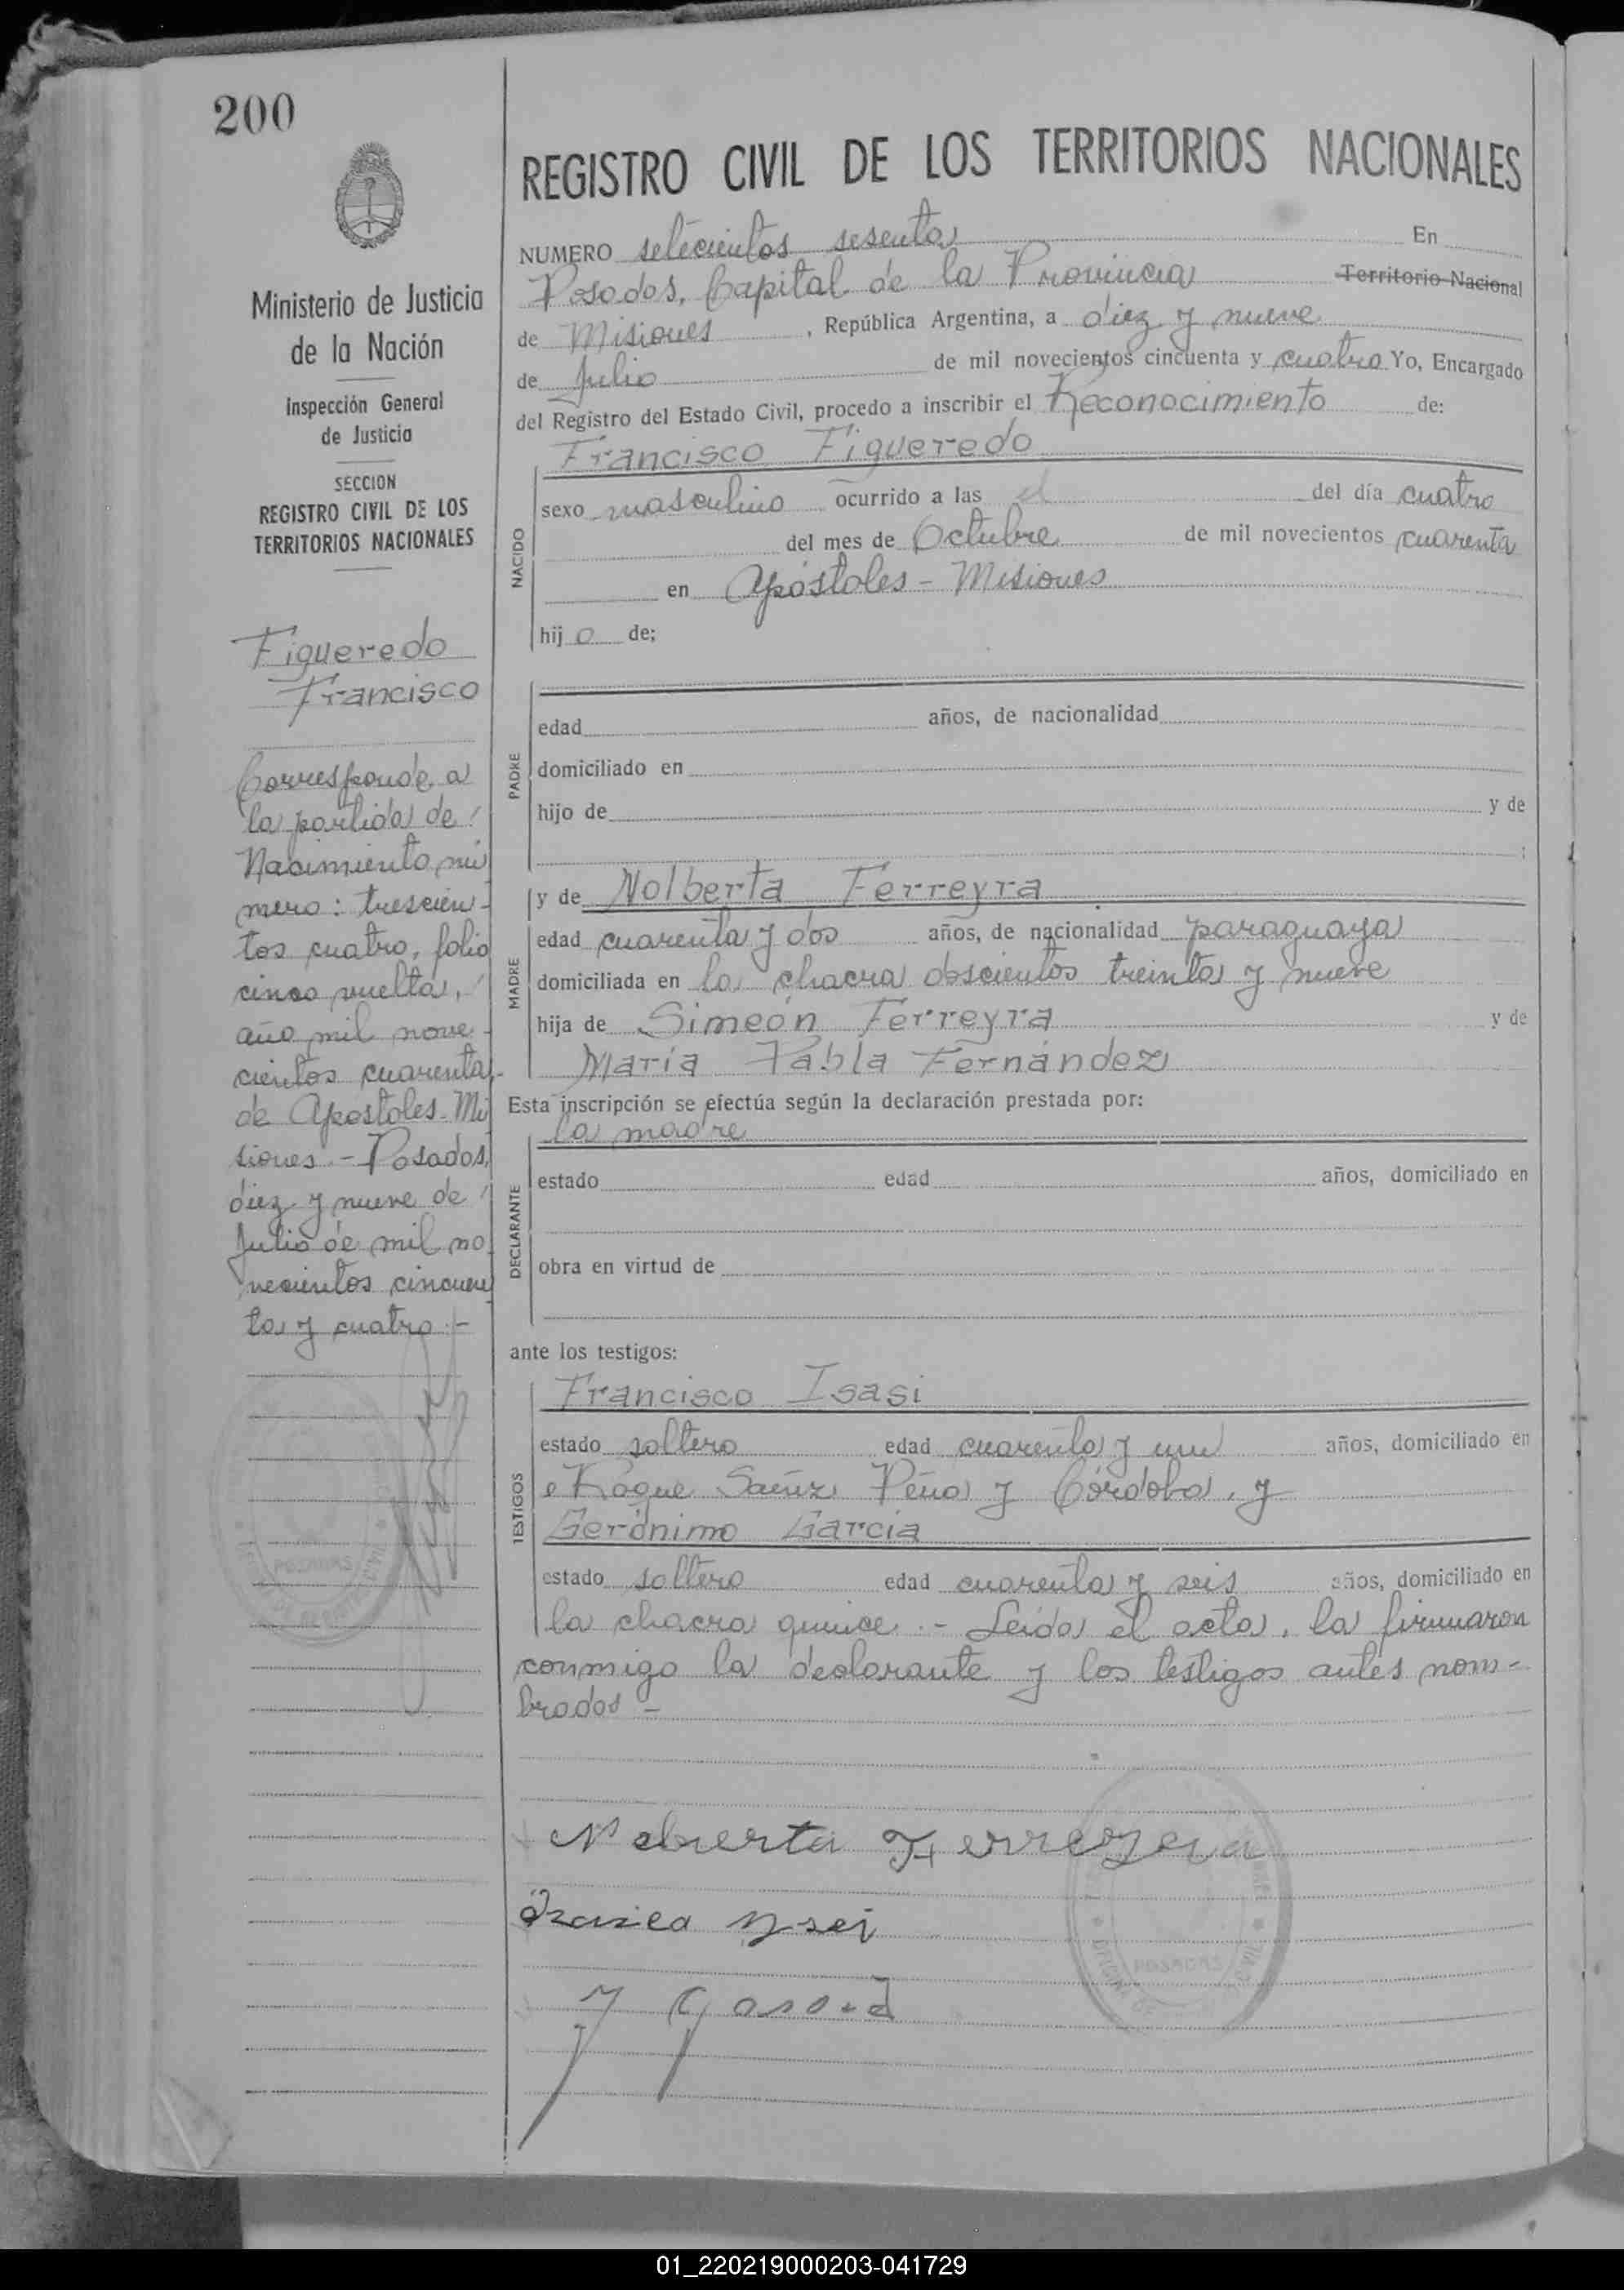 200
REGISTRO CIVIL DE LOS TERRITORIOS NACIONALES
Ministerio de Justicia
de la Nación
Inspección General
de Justicia
SECCION
REGISTRO CIVIL DE LOS
TERRITORIOS NACIONALES
Figueredo
Francisco
Corresponde a
la partida de
Nacimiento nú
mero: trescien-
tos cuatro, folio
cinco vuelta,
año mil nove-
cientos cuarenta,-
de Apostoles-Mi
siones.- Posadas,
diez y nueve de
Julio de mil no
vecientos cincuen
ta y cuatro.-
NUMERO setecientos sesenta En
Posadas, Capital de la Provincia Territorio Nacional
de Misiones, República Argentina, a diez y nueve
de Julio de mil novecientos cincuenta y cuatro Yo, Encargado
del Registro del Estado Civil, procedo a inscribir el Reconocimiento de:
Francisco Figueredo
NACIDO
sexo masculino ocurrido a las el del día cuatro
del mes de Octubre de mil novecientos cuarenta
en Apóstoles - Misiones
hij o de;
PADRE
edad años, de nacionalidad
domiciliado en
hijo de y de
;
y de Nolberta Ferreyra
MADRE
edad cuarenta y dos años, de nacionalidad paraguaya
domiciliada en la chacra doscientos treinta y nueve
hija de Simeón Ferreyra y de
María Pabla Fernández
Esta inscripción se efectúa según la declaración prestada por:
la madre
DECLARANTE
estado edad años, domiciliado en
obra en virtud de
ante los testigos:
Francisco Isasi
TESTIGOS
estado soltero edad cuarenta y un años, domiciliado en
Roque Saénz Peña y Córdoba, y
Gerónimo García
estado soltero edad cuarenta y seis años, domiciliado en
la chacra quince.- Leída el acta, la firmaron
conmigo la declarante y los testigos antes nom-
brados -
Ferreyra
POSADAS
POSADAS
01_220219000203-041729